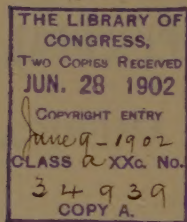 THE LIBRARY OF
CONGRESS,
TWO COPIES RECEIVED
JUN. 28 1902
COPYRIGHT ENTRY
June 9-1902
CLASS a XXc. No.
34939
COPY A.